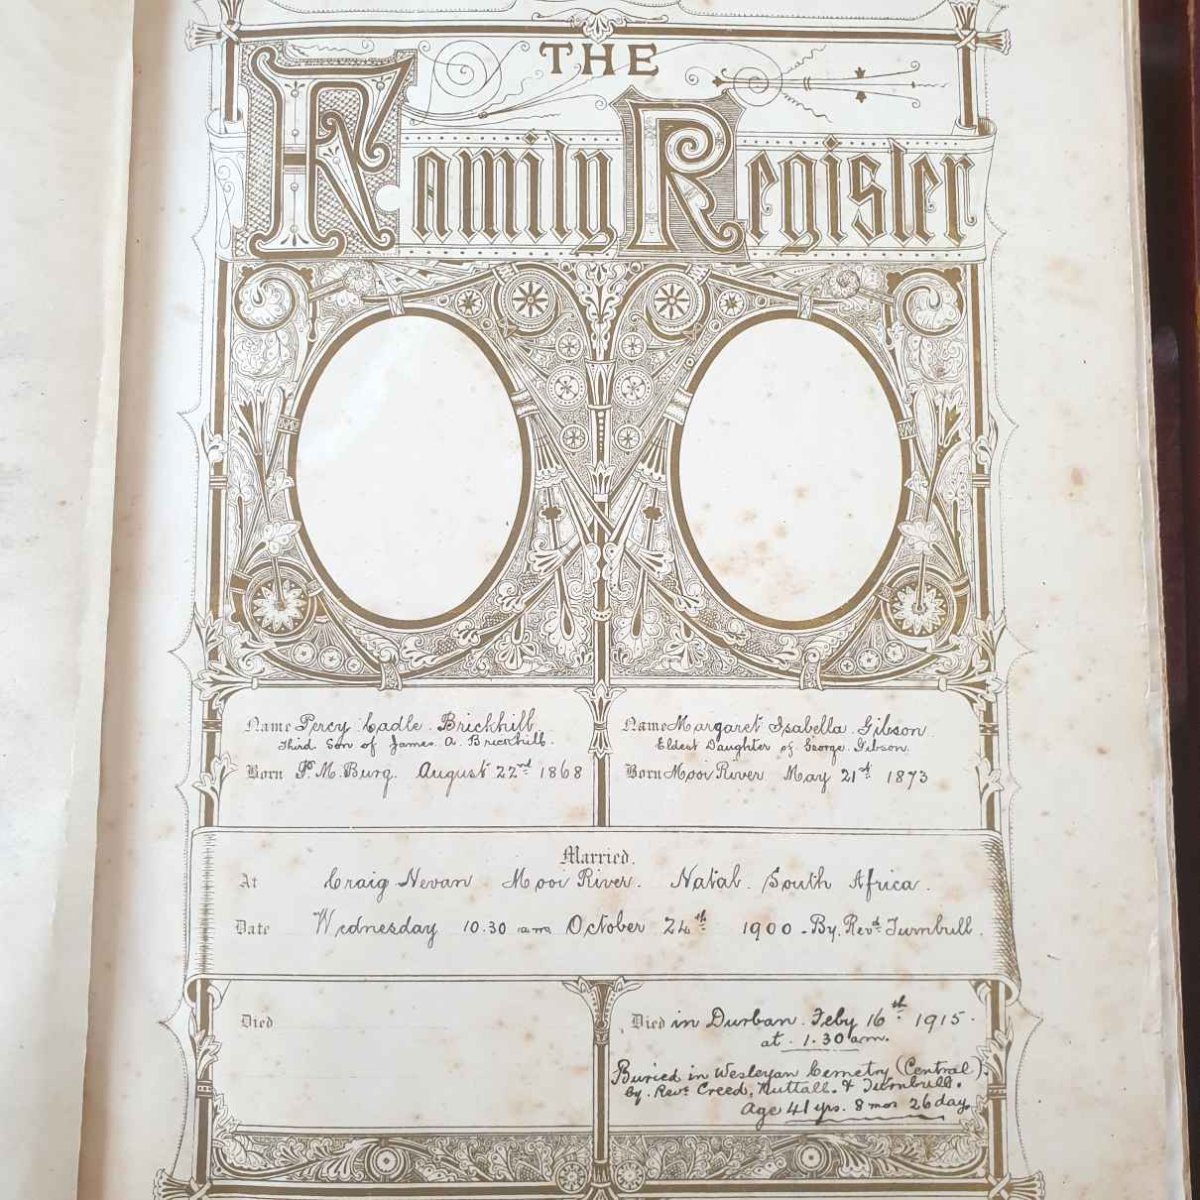 THE
Family Register
Name Percy Cadle. Brickhill
Third Son of James. A. Brickhill.
Born P. M. Burg. August 22nd 1868
Name Margaret Isabella Gibson.
Eldest Daughter of George. Gibson.
Born Mooi River May 21st 1873
Married.
At Craig Nevan Mooi River. Natal. South Africa.
Date Wednesday 10.30 am October 24th 1900 - By. Revd. Turnbull.
Died
Died in Durban. Feby 16th 1915.
at. 1.30 am.
Buried in Wesleyan Cemetry (Central).
by. Revs Creed, Nuttall. & Turnbull.
Age 41 yrs. 8 mos 26 day.